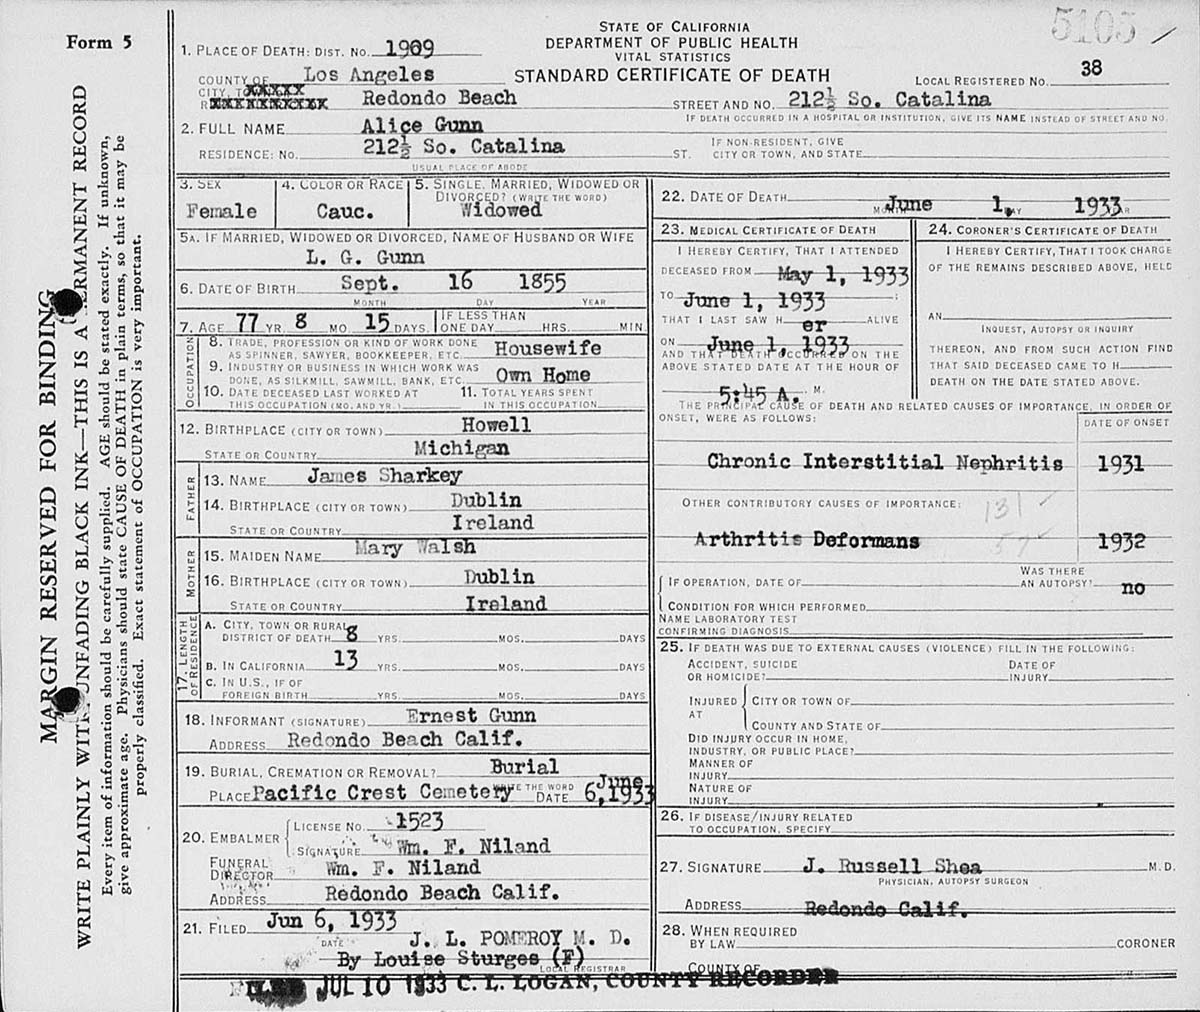 Form 5
STATE OF CALIFORNIA
DEPARTMENT OF PUBLIC HEALTH
VITAL STATISTICS
STANDARD CERTIFICATE OF DEATH
5103
LOCAL REGISTERED NO. 38
1. PLACE OF DEATH: DIST. NO. 1909
COUNTY OF Los Angeles
CITY, TOWN OR XXXXX
RXXXXXXXXXX Redondo Beach
STREET AND NO. 212½ So. Catalina
IF DEATH OCCURRED IN A HOSPITAL OR INSTITUTION, GIVE ITS NAME INSTEAD OF STREET AND NO.
2. FULL NAME Alice Gunn
RESIDENCE: NO. 212½ So. Catalina ST.
IF NON-RESIDENT, GIVE CITY OR TOWN, AND STATE
USUAL PLACE OF ABODE
3. SEX Female
4. COLOR OR RACE Cauc.
5. SINGLE, MARRIED, WIDOWED OR DIVORCED? (WRITE THE WORD) Widowed
5A. IF MARRIED, WIDOWED OR DIVORCED, NAME OF HUSBAND OR WIFE
L. G. Gunn
6. DATE OF BIRTH Sept. 16 1855
MONTH DAY YEAR
7. AGE 77 YR. 8 MO. 15 DAYS. IF LESS THAN ONE DAY HRS. MIN.
OCCUPATION
8. TRADE, PROFESSION OR KIND OF WORK DONE AS SPINNER, SAWYER, BOOKKEEPER, ETC. Housewife
9. INDUSTRY OR BUSINESS IN WHICH WORK WAS DONE, AS SILKMILL, SAWMILL, BANK, ETC. Own Home
10. DATE DECEASED LAST WORKED AT THIS OCCUPATION (MO. AND YR.)
11. TOTAL YEARS SPENT IN THIS OCCUPATION
12. BIRTHPLACE (CITY OR TOWN) Howell
STATE OR COUNTRY Michigan
FATHER
13. NAME James Sharkey
14. BIRTHPLACE (CITY OR TOWN) Dublin
STATE OR COUNTRY Ireland
MOTHER
15. MAIDEN NAME Mary Walsh
16. BIRTHPLACE (CITY OR TOWN) Dublin
STATE OR COUNTRY Ireland
17. LENGTH OF RESIDENCE
A. CITY, TOWN OR RURAL DISTRICT OF DEATH 8 YRS. MOS. DAYS
B. IN CALIFORNIA 13 YRS. MOS. DAYS
C. IN U.S., IF OF FOREIGN BIRTH YRS. MOS. DAYS
18. INFORMANT (SIGNATURE) Ernest Gunn
ADDRESS Redondo Beach Calif.
19. BURIAL, CREMATION OR REMOVAL? Burial
WRITE THE WORD
PLACE Pacific Crest Cemetery DATE June 6, 1933
20. EMBALMER LICENSE NO. 1523
SIGNATURE Wm. F. Niland
FUNERAL DIRECTOR Wm. F. Niland
ADDRESS Redondo Beach Calif.
21. FILED Jun 6, 1933
DATE J. L. POMEROY M. D.
By Louise Sturges (F)
LOCAL REGISTRAR
22. DATE OF DEATH June 1, 1933
MONTH DAY YEAR
23. MEDICAL CERTIFICATE OF DEATH
I HEREBY CERTIFY, THAT I ATTENDED
DECEASED FROM May 1, 1933
TO June 1, 1933 ;
THAT I LAST SAW H er ALIVE
ON June 1, 1933
AND THAT DEATH OCCURRED ON THE
ABOVE STATED DATE AT THE HOUR OF
5:45 A. M.
24. CORONER'S CERTIFICATE OF DEATH
I HEREBY CERTIFY, THAT I TOOK CHARGE
OF THE REMAINS DESCRIBED ABOVE, HELD
AN
INQUEST, AUTOPSY OR INQUIRY
THEREON, AND FROM SUCH ACTION FIND
THAT SAID DECEASED CAME TO H
DEATH ON THE DATE STATED ABOVE.
THE PRINCIPAL CAUSE OF DEATH AND RELATED CAUSES OF IMPORTANCE, IN ORDER OF
ONSET, WERE AS FOLLOWS: DATE OF ONSET
Chronic Interstitial Nephritis 1931
OTHER CONTRIBUTORY CAUSES OF IMPORTANCE: 131
57
Arthritis Deformans 1932
IF OPERATION, DATE OF
WAS THERE AN AUTOPSY? no
CONDITION FOR WHICH PERFORMED
NAME LABORATORY TEST
CONFIRMING DIAGNOSIS
25. IF DEATH WAS DUE TO EXTERNAL CAUSES (VIOLENCE) FILL IN THE FOLLOWING:
ACCIDENT, SUICIDE OR HOMICIDE?
DATE OF INJURY
INJURED AT CITY OR TOWN OF
COUNTY AND STATE OF
DID INJURY OCCUR IN HOME,
INDUSTRY, OR PUBLIC PLACE?
MANNER OF
INJURY
NATURE OF
INJURY
26. IF DISEASE/INJURY RELATED
TO OCCUPATION, SPECIFY
27. SIGNATURE J. Russell Shea M.D.
PHYSICIAN, AUTOPSY SURGEON
ADDRESS Redondo Calif.
28. WHEN REQUIRED
BY LAW CORONER
COUNTY OF
FILED JUL 10 1933 C. L. LOGAN, COUNTY RECORDER
MARGIN RESERVED FOR BINDING
WRITE PLAINLY WITH UNFADING BLACK INK—THIS IS A PERMANENT RECORD
Every item of information should be carefully supplied. AGE should be stated exactly. If unknown,
give approximate age. Physicians should state CAUSE OF DEATH in plain terms, so that it may be
properly classified. Exact statement of OCCUPATION is very important.